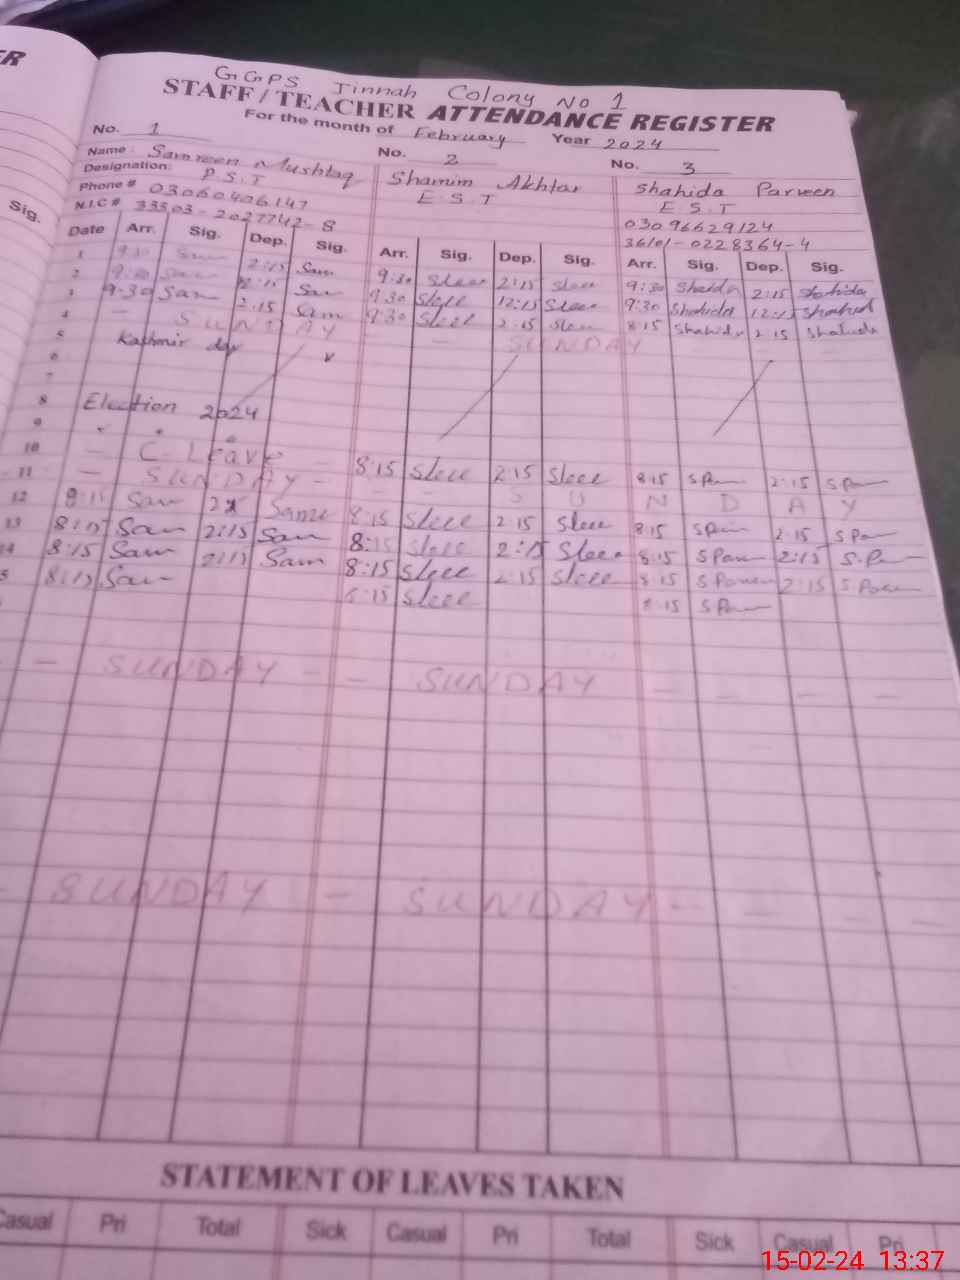 ER
GGPS Jinnah Colony No 1
STAFF / TEACHER ATTENDANCE REGISTER
For the month of February Year 2024
No. 1 No. 2 No. 3
Name: Mushtaq Shamim Akhtar Shahida Parveen
Designation: P.S.T E.S.T E.S.T
Phone # 03060406147 03096629124
N.I.C # 33303-2027742-8 36101-0228364-4
Sig. Date Arr. Sig. Dep. Sig. Arr. Sig. Dep. Sig. Arr. Sig. Dep. Sig.
1 9:30 Sam 2:15 Sam 9:30 Sleee 2:15 Sleee 9:30 Shahida 2:15 Shahida
2 9:30 Sam 12:15 Sam 9:30 Sleee 12:15 Sleee 9:30 Shahida 12:15 Shahida
3 9-30 Sam 2:15 Sam 9:30 Sleee 2:15 Sleee 8:15 Shahida 2:15 Shahida
4 - SUNDAY - - SUNDAY
5 Kashmir day
6
7
8 Election 2024
9
10 - C. Leave - 8:15 Sleee 2:15 Sleee 8:15 S Par 2:15 S Par
11 - SUNDAY - - - SUNDAY
12 8:15 Sam Sam 8:15 Sleee 2:15 Sleee 8:15 S Par 2:15 S Par
13 8:15 Sam 2:15 Sam 8:15 Sleee 2:15 Sleee 8:15 S Par 2:15 S. Par
14 8:15 Sam 2:15 Sam 8:15 Sleee 2:15 Sleee 8:15 S Parveen 2:15 S Parveen
5 8:15 Sam 8:15 Sleee 8:15 S Par
- - SUNDAY - - SUNDAY - - - -
- SUNDAY - SUNDAY - - - -
STATEMENT OF LEAVES TAKEN
Casual Pri Total Sick Casual Pri Total Sick Casual Pri
15-02-24 13:37